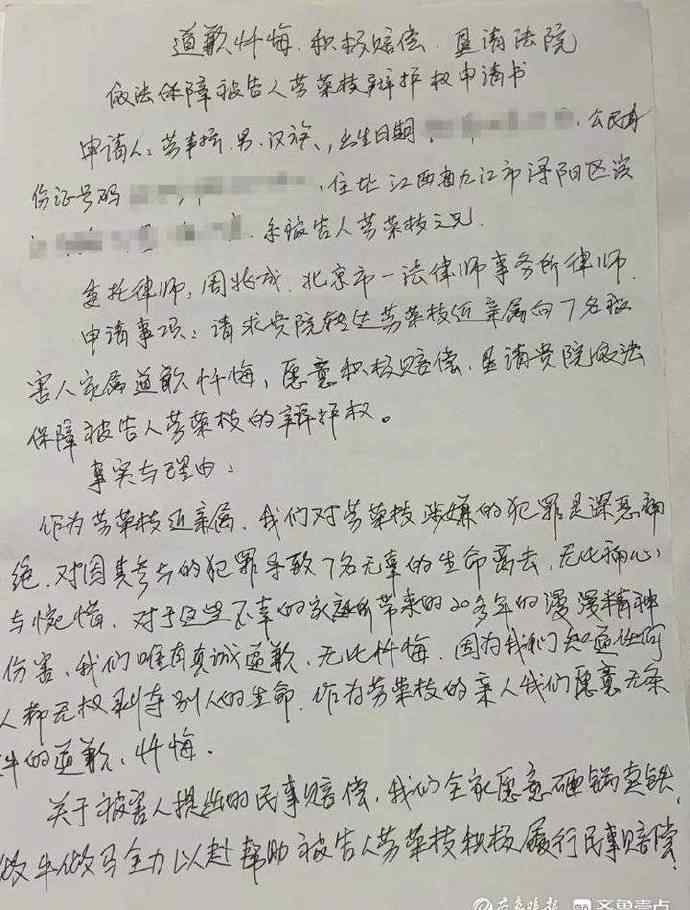 道歉忏悔、积极赔偿、恳请法院
依法保障被告人劳荣枝辩护权申请书
申请人：劳声桥，男，汉族，出生日期，公民身
份证号码，住址江西省九江市浔阳区滨
，系被告人劳荣枝之兄
委托律师：周兆成，北京市一法律师事务所律师
申请事项：请求贵院转达劳荣枝近亲属向7名被
害人家属道歉忏悔，愿意积极赔偿，恳请贵院依法
保障被告人劳荣枝的辩护权。
事实与理由：
作为劳荣枝近亲属，我们对劳荣枝涉嫌的犯罪是深恶痛
绝，对因其参与的犯罪导致7名无辜的生命离去，无比痛心
与惋惜，对于这些不幸的家庭所带来的20多年的漫漫精神
伤害，我们唯有真诚道歉，无比忏悔，因为我们知道任何
人都无权剥夺别人的生命，作为劳荣枝的亲人我们愿意无条
件的道歉、忏悔。
关于被害人提出的民事赔偿，我们全家愿意砸锅卖铁，
做牛做马全力以赴帮助被告人劳荣枝积极履行民事赔偿，
齐鲁晚报 齐鲁壹点